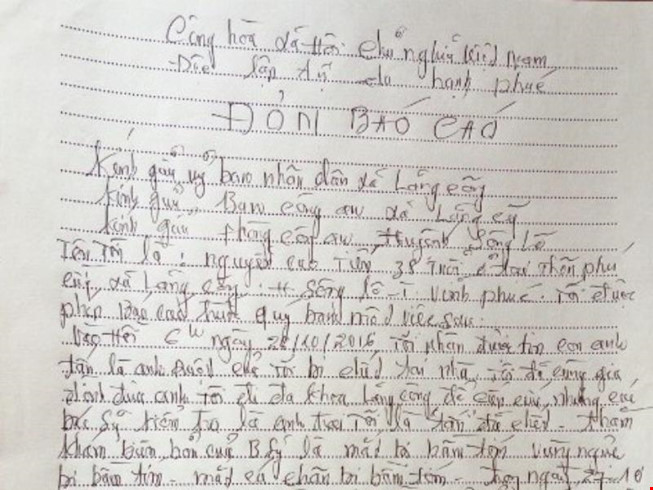 Cộng hòa xã hội chủ nghĩa Việt Nam
Độc lập tự do hạnh phúc
ĐƠN BÁO CÁO
Kính gửi uỷ ban nhân dân xã Lãng công
Kính gửi Ban công an xã Lãng
Kính gửi phòng công an huyện Sông Lô
Tên Tôi là : nguyễn cao Tiến 38 Tuổi ở tại Thôn phú
xã Lãng công H Sông lô - T vĩnh phúc. Tôi được
phép báo cáo quy ban một việc sau
Vào hồi 6h ngày 28/10/2016 Tôi nhận được tin con anh
là anh tôi bị chết tại nhà Tôi đã cùng gia
đình đưa anh tôi đi đa khoa Lãng công để cấp cứu, nhưng
bác sỹ kiểm tra là anh tôi là đã chết -
khám của B Sỹ là mặt bị bầm tím vùng ngực
bị bầm tím - mắt cá chân bị bầm tím - ngày 27-10